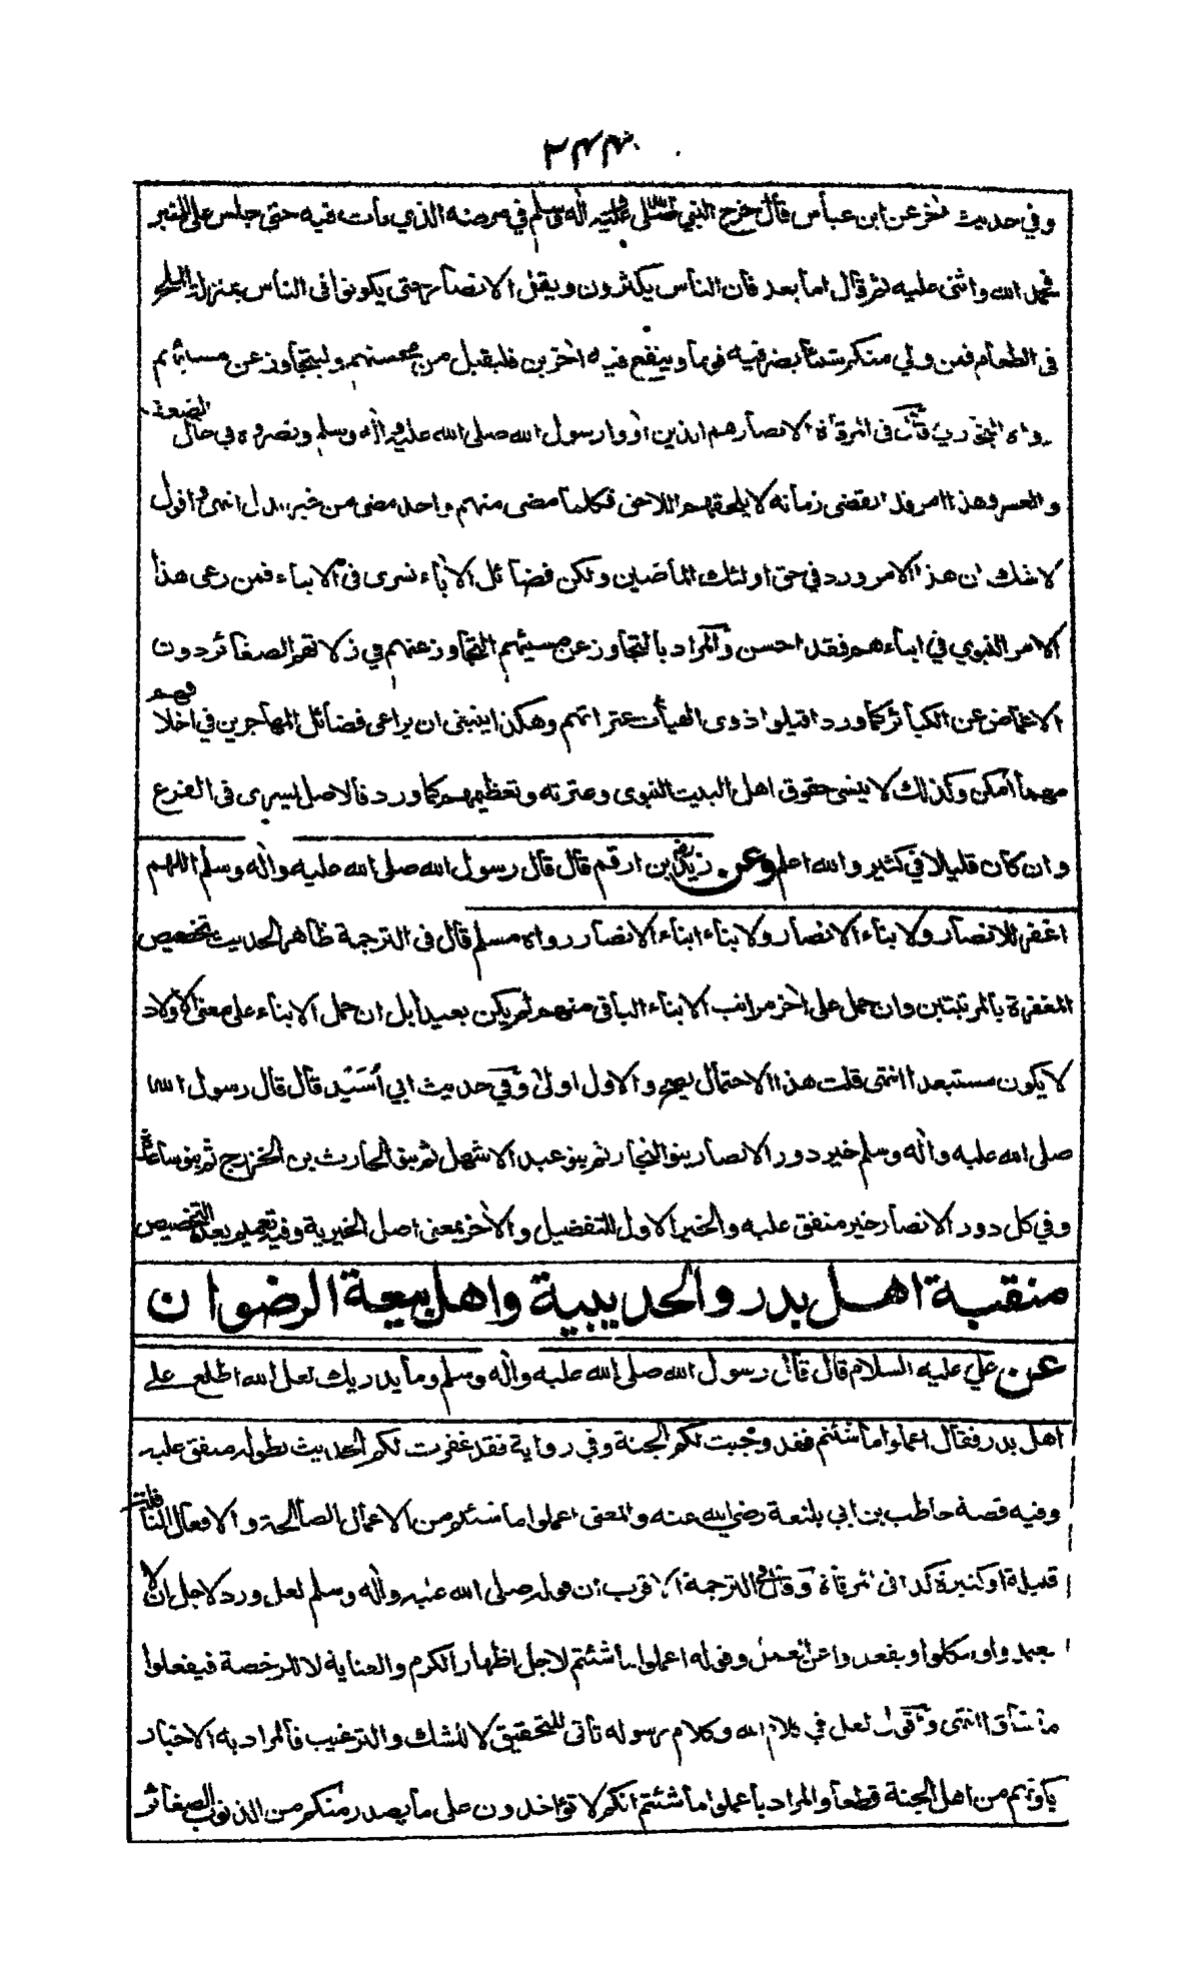 ٢٤٤
وفي حديث اخر عن ابن عباس قال خرج النبي صلى الله عليه وآله وسلم في مرضه الذي مات فيه حتى جلس على المنبر
فحمد الله واثنى عليه ثم قال اما بعد فان الناس يكثرون ويقل الانصار حتى يكونوا في الناس بمنزلة الملح
في الطعام فمن ولي منكم شيئا يضر فيه قوما وينفع فيه اخرين فليقبل من محسنهم وليتجاوز عن مسيئهم
رواه البخاري قال في المرقاة الانصار هم الذين اووا رسول الله صلى الله عليه وآله وسلم ونصروه في حال الضعف
والعسر وهذا امر قد انقضى زمانه لا يلحقهم اللاحق فكلما مضى منهم واحد مضى من غير بدل انتهى واقول
لا شك ان هذا الامر ورد في حق اولئك الماضين ولكن فضائل الآباء تسرى في الابناء فمن رعى هذا
الامر النبوي في ابناءهم فقد احسن والمراد بالتجاوز عن مسيئهم التجاوز عنهم في زلاتهم الصغائر دون
الاغماض عن الكبائر كما ورد اقيلوا ذوى الهيأت عثراتهم وهكذا ينبغى ان يراعى فضائل المهاجرين في اخلافهم
مهما أمكن وكذلك لا ينسى حقوق اهل البيت النبوى وعترته وتعظيمهم كما ورد فالاصل يسرى فى الفرع
وان كان قليلا لا في كثير والله اعلم وعن زيد بن ارقم قال قال رسول الله صلى الله عليه وآله وسلم اللهم
اغفر للانصار ولابناء الانصار ولابناء ابناء الانصار رواه مسلم قال فى الترجمة ظاهر الحديث تخصيص
المغفرة بالمرتبتين وان حمل على اخر مراتب الابناء الباقى منهم لم يكن بعيدا بل ان حمل الابناء على معنى الاولاد
لا يكون مستبعدا انتهى قلت هذا الاحتمال يصح والاول اولى وفي حديث ابي أسيد قال قال رسول الله
صلى الله عليه وآله وسلم خير دور الانصار بنو النجار ثم بنو عبد الاشهل ثم بنو الحارث بن الخزرج ثم بنو ساعدة
وفي كل دور الانصار خير متفق عليه والخير الاول للتفضيل والآخر بمعنى اصل الخيرية وفيه تعميم بعد التخصيص
منقبة اهل بدر والحديبية واهل بيعة الرضوان
عن علي عليه السلام قال قال رسول الله صلى الله عليه وآله وسلم وما يدريك لعل الله اطلع على
اهل بدر فقال اعملوا ما شئتم فقد وجبت لكم الجنة وفي رواية فقد غفرت لكم الحديث بطوله متفق عليه
وفيه قصة حاطب بن ابي بلتعة رضي الله عنه والمعنى اعملوا ما شئتم من الاعمال الصالحة والافعال النافلة
قليلة او كثيرة كذا في المرقاة وقال في الترجمة الاقرب ان قوله صلى الله عليه وآله وسلم لعل ورد لاجل ان لا
يعتمدوا ويتكلوا ويقعدوا عن العمل وقوله اعملوا ما شئتم لاجل اظهار الكرم والعناية لا للرخصة فيفعلوا
ما شاؤا انتهى واقول لعل في كلام الله وكلام رسوله تأتى للتحقيق لا للشك والترغيب فالمراد به الاخبار
بكونهم من اهل الجنة قطعا والمراد باعملوا ما شئتم انكم لا تؤاخذون على ما يصدر منكم من الذنوب الصغائر